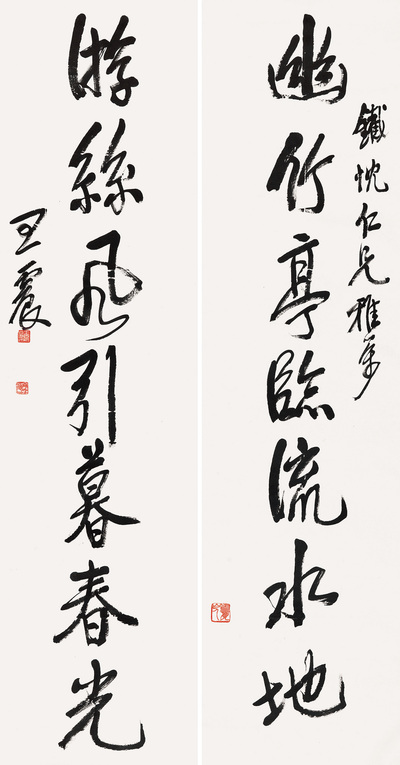 鐵忱仁兄雅屬
幽竹亭臨流水地
游絲風引暮春光
王震